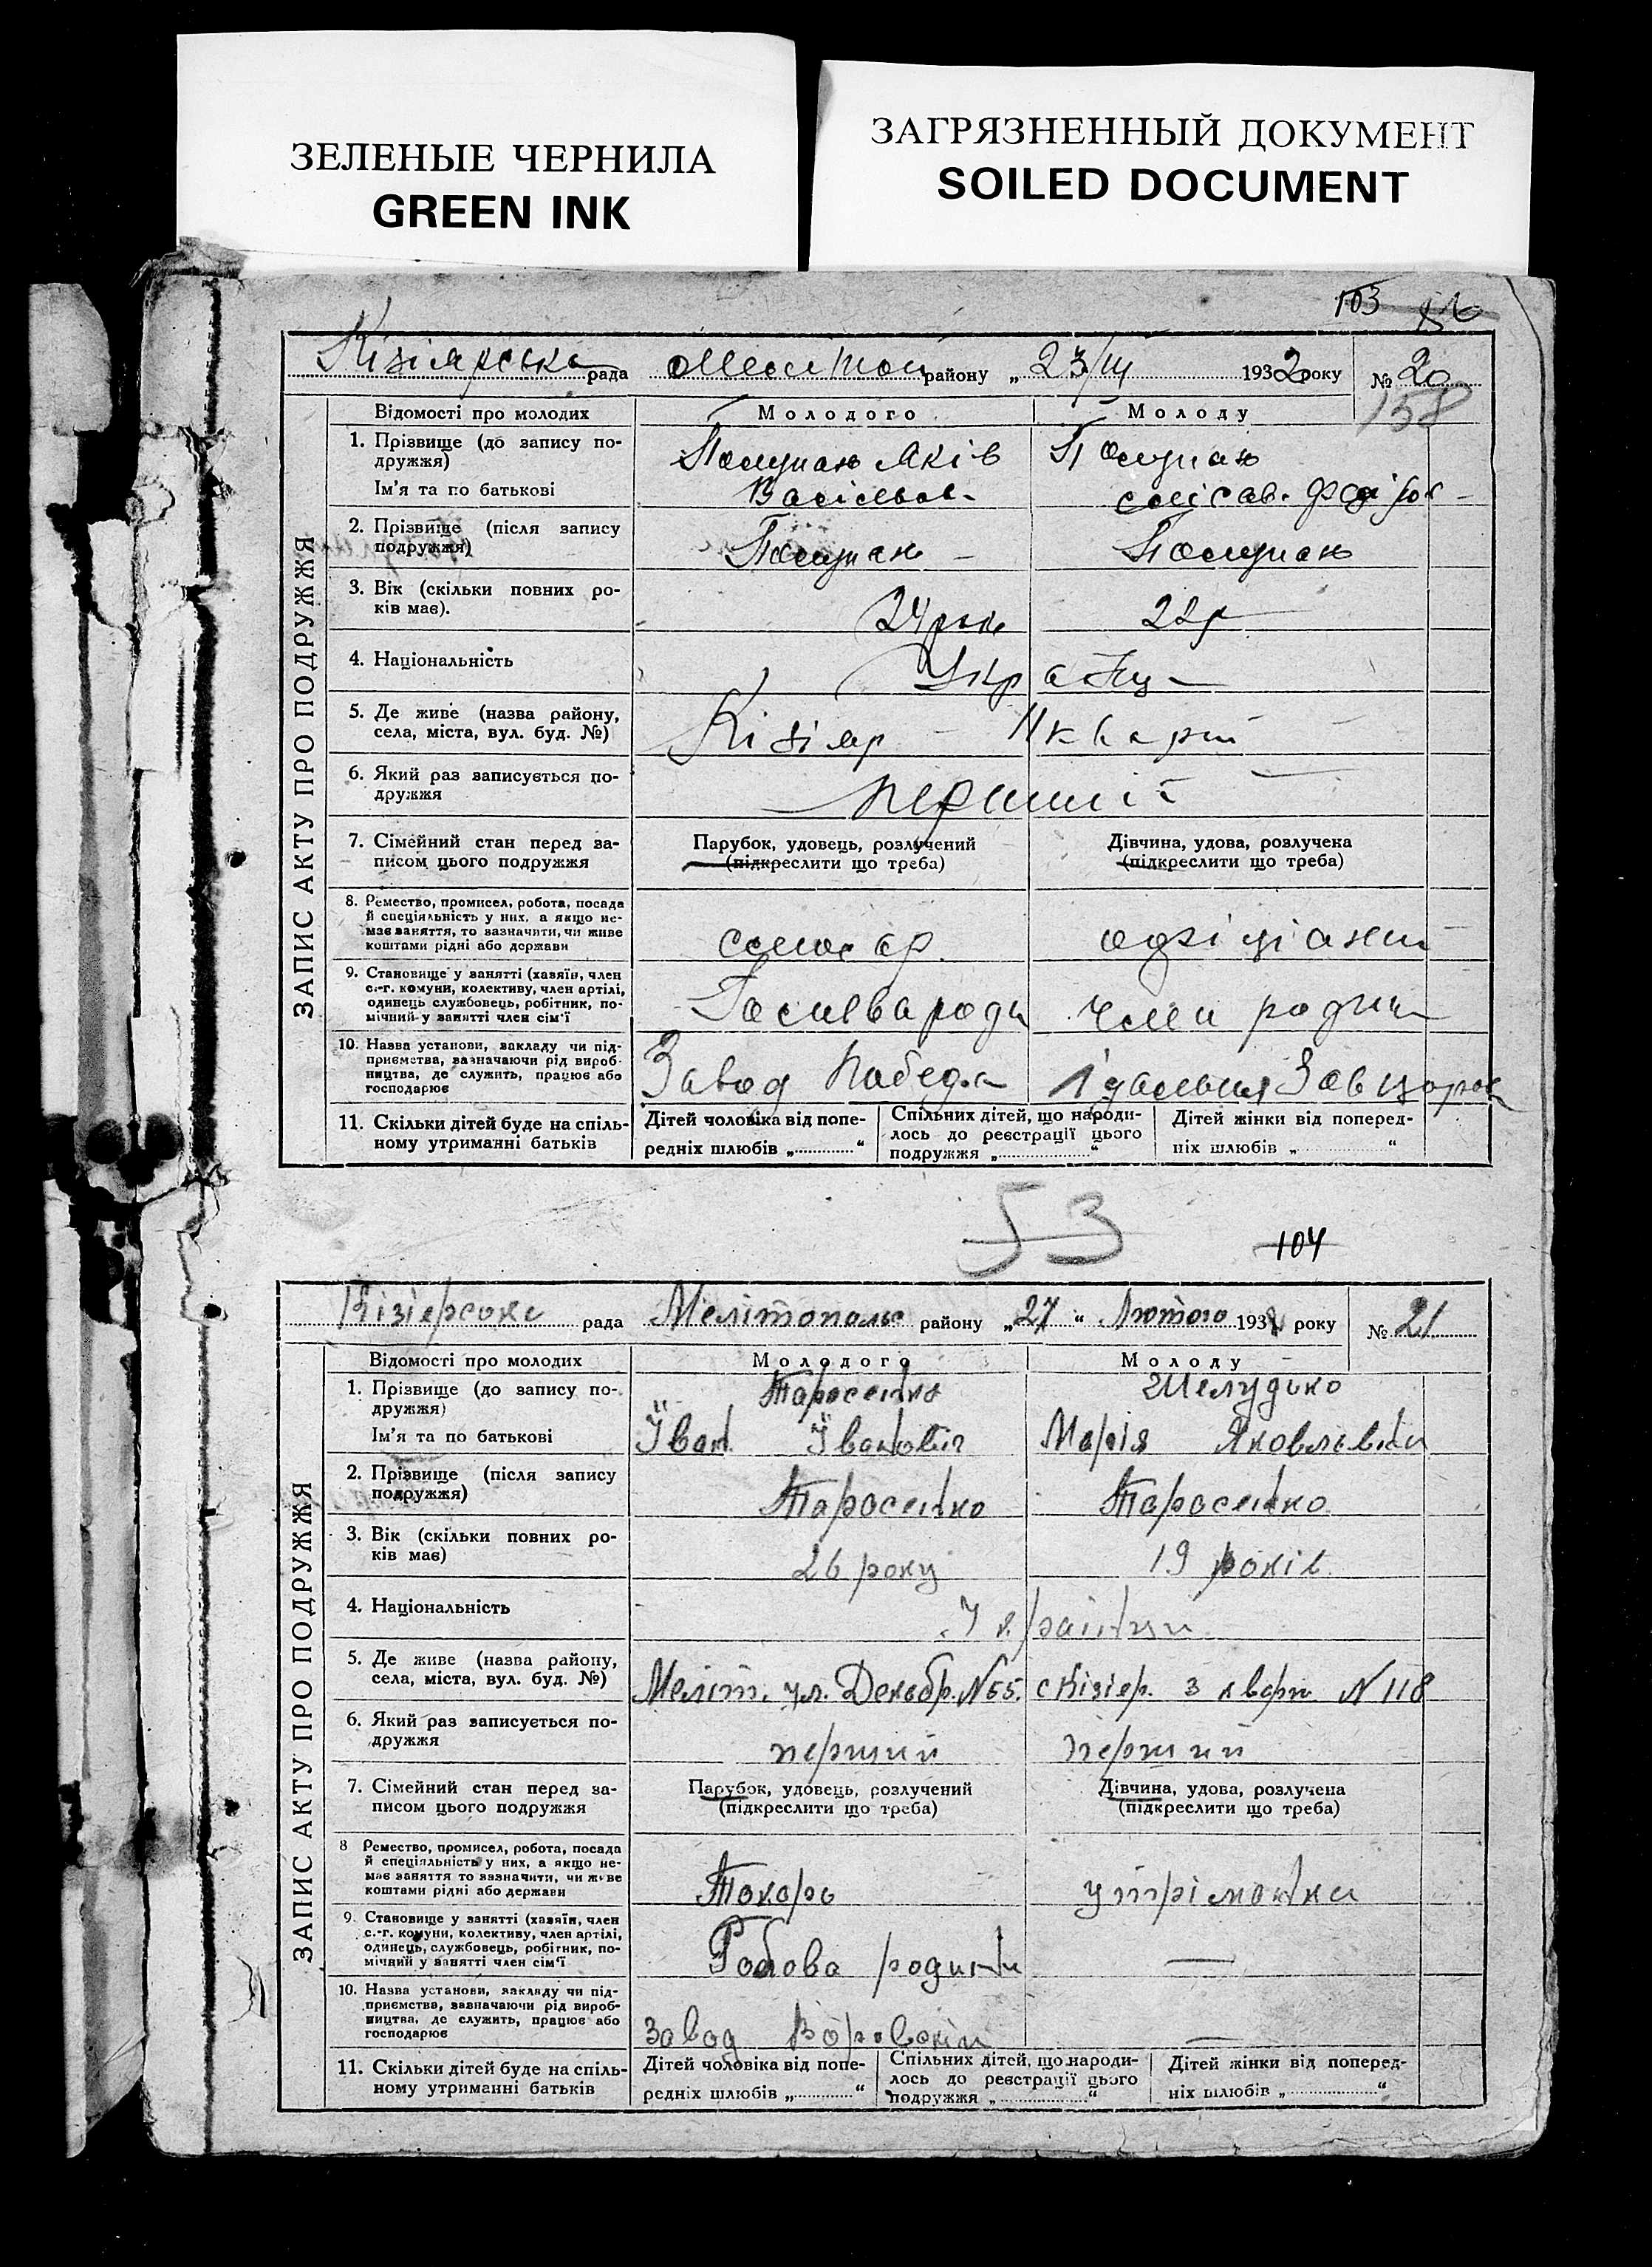 ЗЕЛЕНЫЕ ЧЕРНИЛА
GREEN INK
ЗАГРЯЗНЕННЫЙ ДОКУМЕНТ
SOILED DOCUMENT
103
ЗАПИС АКТУ ПРО ПОДРУЖЖЯ
Кізіярська рада Мелітоп району „ 23/III 1932 року № 20
158
Відомості про молодих Молодого Молоду
1. Прізвище (до запису по-
дружжя)
Ім'я та по батькові
Полупан Яків
Васільов-
Полупан
Єлісав. Федіров-
2. Прізвище (після запису
подружжя)
Полупан Полупан
3. Вік (скільки повних ро-
ків має).
24 рок 22 р
4. Національність
Украінц
5. Де живе (назва району,
села, міста, вул. буд. №)
Кізіяр 11 кварт
6. Який раз записується по-
дружжя
перший
7. Сімейний стан перед за-
писом цього подружжя
Парубок, удовець, розлучений
(підкреслити що треба)
Дівчина, удова, розлучена
(підкреслити що треба)
8. Ремество, промисел, робота, посада
й спеціяльність у них, а якщо не-
має заняття, то зазначити, чи живе
коштами рідні або держави
слюсар. офіціант
9. Становище у занятті (хазяїн, член
с.-г. комуни, колективу, член артілі,
одинець службовець, робітник, по-
мічний у занятті член сім'ї
Голива роди член родини
10. Назва установи, закладу чи під-
приємства, зазначаючи рід вироб-
ництва, де служить, працює або
господарює
Завод Победа Їдальня
11. Скільки дітей буде на спіль-
ному утриманні батьків
Дітей чоловіка від попе-
редніх шлюбів „ “
Спільних дітей, що народи-
лось до реєстрації цього
подружжя „ “
Дітей жінки від поперед-
ніх шлюбів „ “
53
104
ЗАПИС АКТУ ПРО ПОДРУЖЖЯ
Кізіерська рада Мелітопольс району „27“ Лютого 1932 року № 21
Відомості про молодих Молодого Молоду
1. Прізвище (до запису по-
дружжя)
Ім'я та по батькові
Тарасенко
Їван Їванович
Шелудько
Марія Яковлевни
2. Прізвище (після запису
подружжя)
Тарасенко Тарасенко
3. Вік (скільки повних ро-
ків має)
26 року 19 років
4. Національність
Украінци
5. Де живе (назва району,
села, міста, вул. буд. №)
Меліт. ул. Декабр. N 55. с Кізіер. 3 кварт N 118
6. Який раз записується по-
дружжя
перший перший
7. Сімейний стан перед за-
писом цього подружжя
Парубок, удовець, розлучений
(підкреслити що треба)
Дівчина, удова, розлучена
(підкреслити що треба)
8 Ремество, промисел, робота, посада
й спеціяльність у них, а якщо не-
має заняття то зазначити, чи живе
коштами рідні або держави
Токарь утріманка
9. Становище у занятті (хазяїн, член
с.-г. комуни, колективу, член артілі,
одинець, службовець, робітник, по-
мічний у занятті член сім'ї
Голова родини —
10. Назва установи, закладу чи під-
приємства, зазначаючи рід вироб-
ництва, де служить, працює або
господарює
завод Воровскім —
11. Скільки дітей буде на спіль-
ному утриманні батьків
Дітей чоловіка від попе-
редніх шлюбів „ “
Спільних дітей, що народи-
лось до реєстрації цього
подружжя „ “
Дітей жінки від поперед-
ніх шлюбів „ “